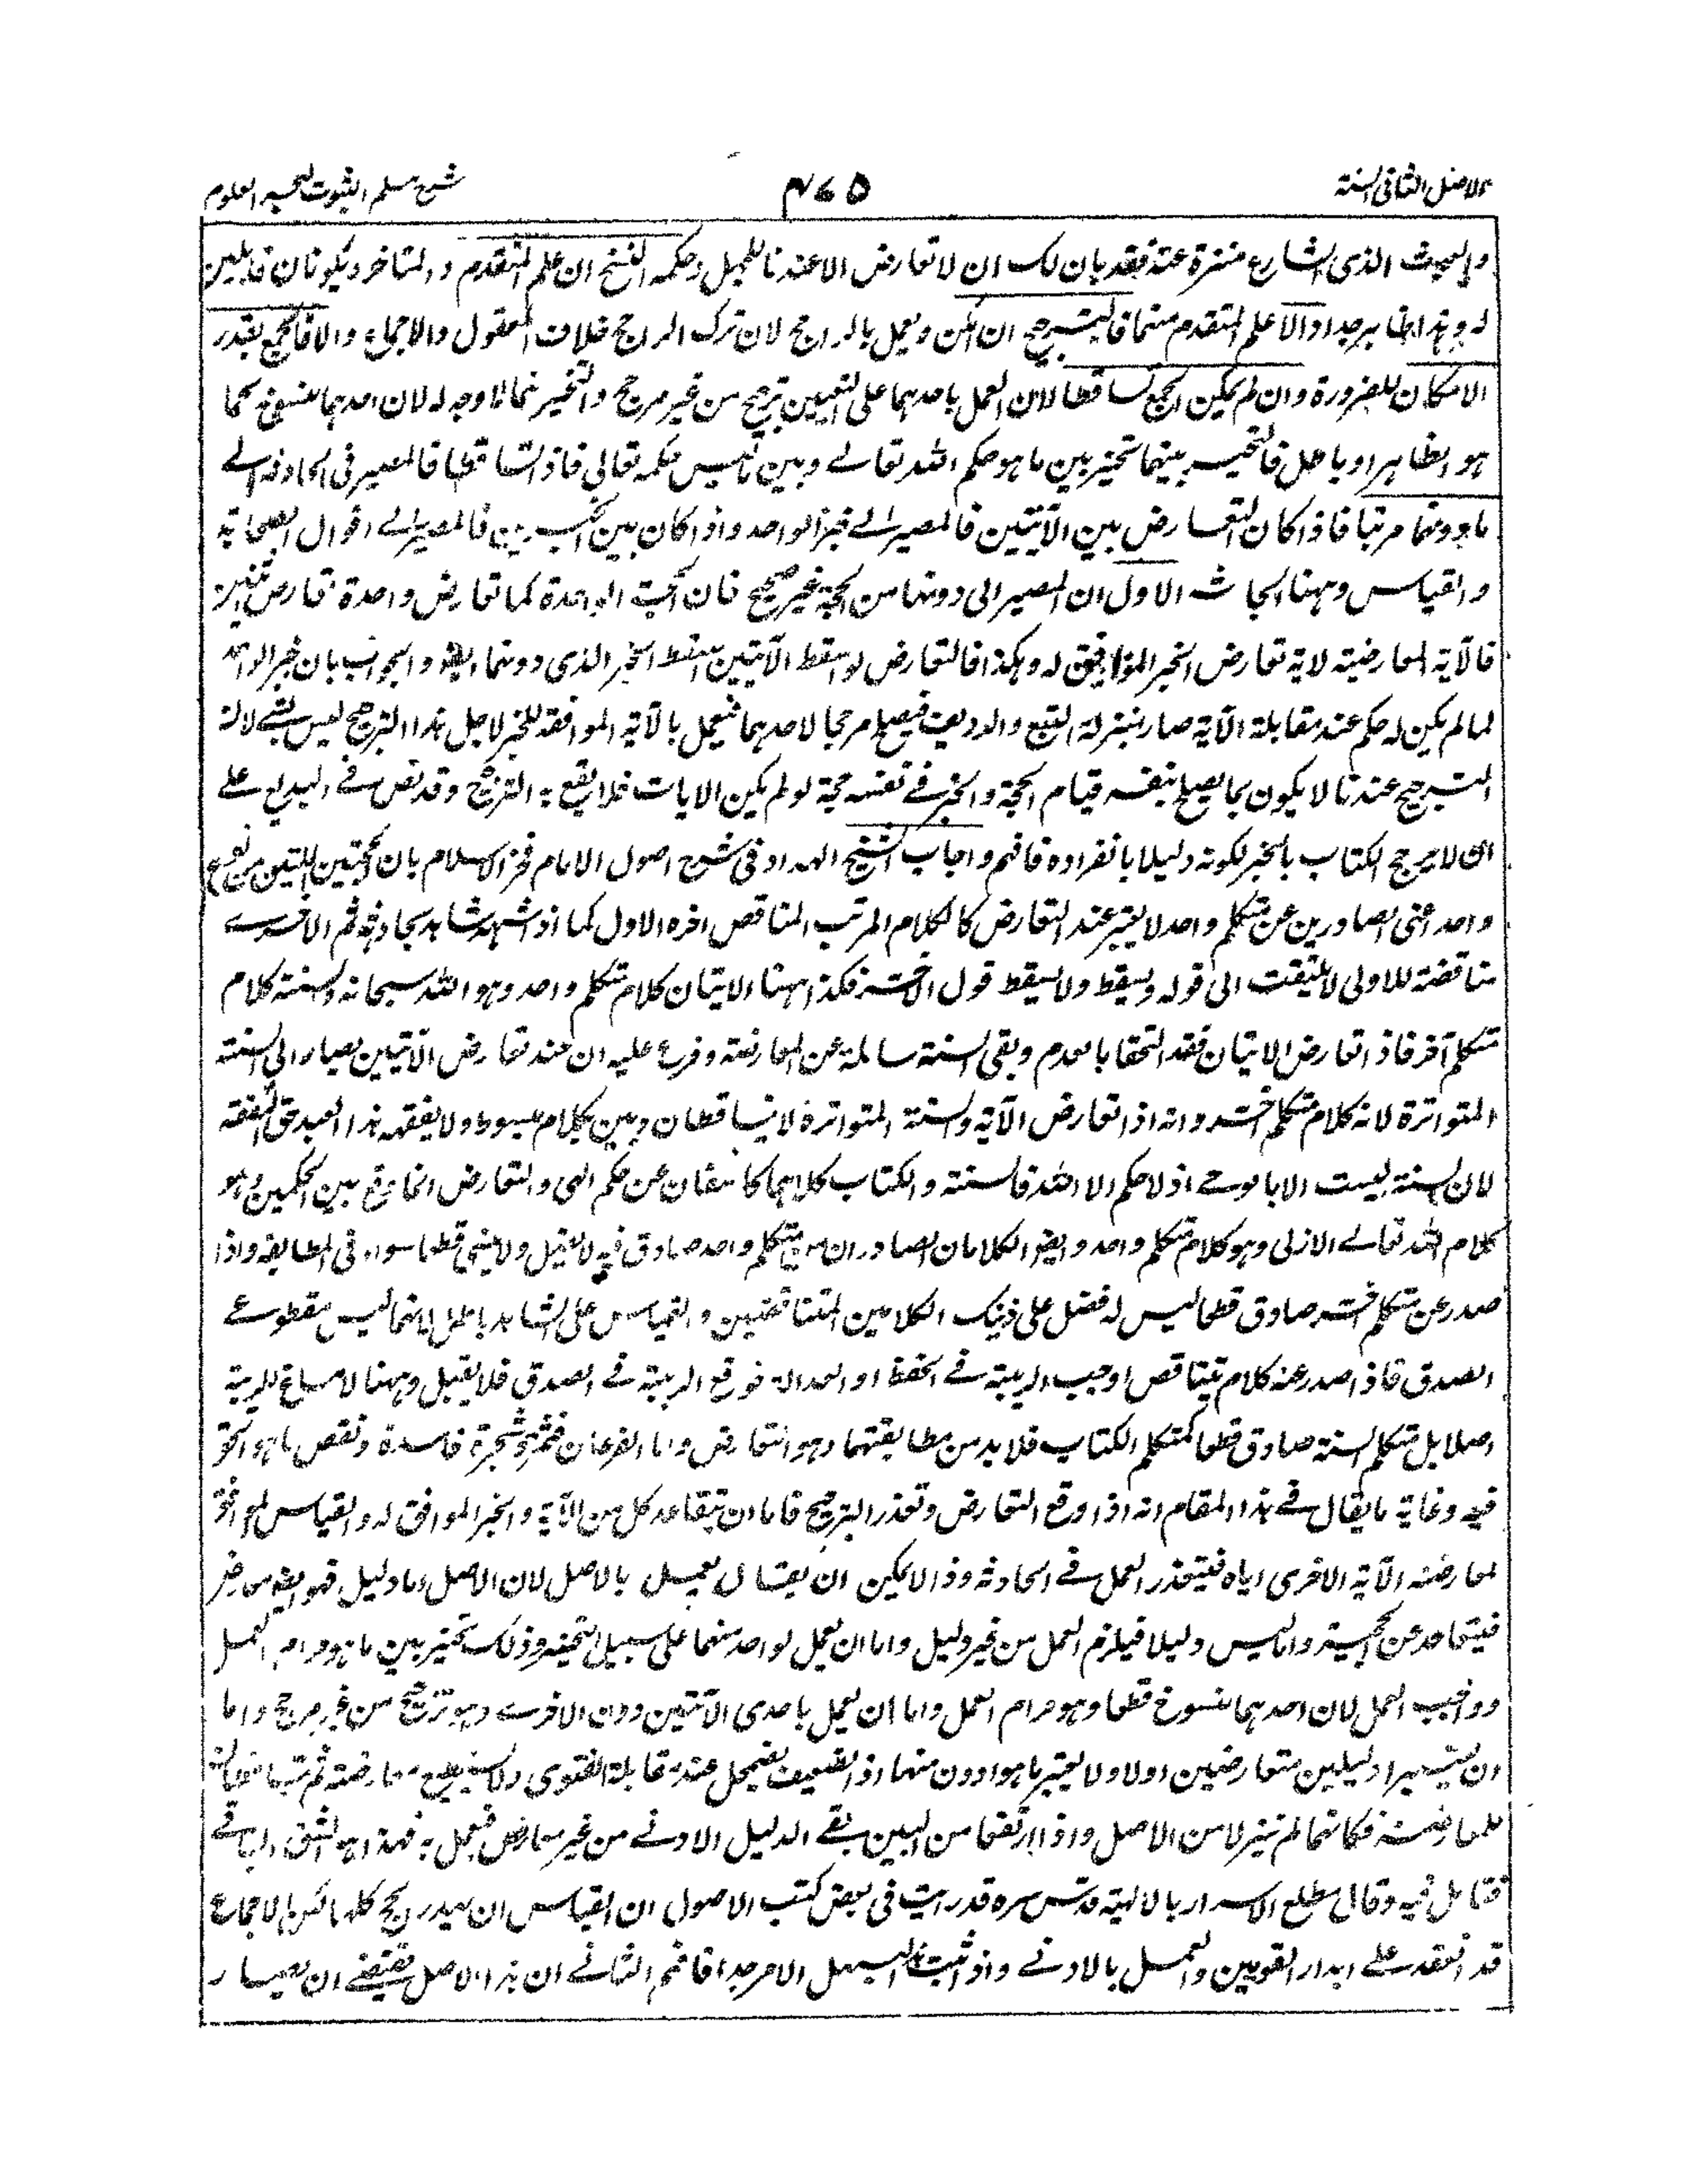 الاصل الثانى السنة
۴۷۵
شرح مسلم الثبوت لبحر العلوم
والعبث الذى الشارع منزه عنه فقد بان لك ان لا تعارض الا عندنا للجهل وحكمه النسخ ان علم المتقدم والمتاخر ويكونان قابلين
له وهذا ظاهر جدا والا علم المتقدم منهما فالترجيح ان امكن ويعمل بالراجح لان ترك الراجح خلاف المعقول والاجماع والا فالجمع بقدر
الامكان للضرورة وان لم يمكن الجمع تساقطا لان العمل باحدهما على التعيين ترجيح من غير مرجح والتخيير مما لا وجه له لان احدهما منسوخ كما
هو الظاهر او باطل فالتخيير بينهما تخيير بين ما هو حكم الله تعالے وبين ما ليس حكمه تعالى فاذا تساقطا فالمصير فى الحادثة الے
ما دونهما مرتبا فاذا كان التعارض بين الآيتين فالمصير الے خبر الواحد واذا كان بين الخبرين فالمصير الے اقوال الصحابة
والقياس وههنا ابحاث الاول ان المصير الى دونهما من الحجة غير صحيح فان الحجة الواحدة كما تعارض واحدة تعارض اثنين
فالآية المعارضة لآية تعارض الخبر الموافق له وهكذا فالتعارض لو اسقط الآيتين اسقط الخبر الذى دونهما ايضا والجواب بان خبر الواحد
لما لم يكن له حكم عند مقابلة الآية صار بمنزلة التبع والرديف فيصلح مرجحا لاحدهما فيعمل بالآية الموافقة للخبر لاجل هذا الترجيح ليس بشے لان
الترجيح عندنا لا يكون بما يصلح بنفسه قيام الحجة والخبر فے نفسه حجة لو لم يكن الايات فلا يقع به الترجيح وقد نص فے البديع علے
ان لا يرجح الكتاب بالخبر لكونه دليلا بانفراده فافهم واجاب الشيخ الهداد فى شرح اصول الامام فخر الاسلام بان الحجتين اللتين من نوع
واحد اعنى الصادرين عن متكلم واحد لا يعتبر عند التعارض كالكلام المرتب المناقض اخره الاول كما اذا شهد شاهد بحادثة ثم الاخرے
مناقضة للاولى لا يلتفت الى قوله ويسقط ولا يسقط قول الاخر فكذا ههنا الايتان كلام متكلم واحد وهو الله سبحانه والسنة كلام
متكلم آخر فاذا تعارض الايتان فقد التحقا بالعدم وبقى السنة سالمة عن المعارضة وفرع عليه ان عند تعارض الآيتين يصار الى السنة
المتواترة لانه كلام متكلم اخر وانه اذا تعارض الآية والسنة المتواترة لا يتساقطان وبين بكلام مبسوط ولا يفقهه هذا العبد حق الفقه
لان السنة ليست الا بالوحے اذ لا حكم الا لله فالسنة والكتاب كلاهما كاشفان عن حكم الهى والتعارض انما وقع بين الحكمين وهو
كلام الله تعالے الازلى وهو كلام متكلم واحد وايضا الكلامان الصادران من متكلم واحد صادق فيه لا يخيل ولا ينسى قطعا سواء فى المطابقة واذا
صدر عن متكلم اخر صادق قطعا ليس له فضل على ذينك الكلامين المتناقضين والقياس على الشاهد باطل لانما ليس مقطوعے
الصدق فاذا صدر عنه كلام يتناقض اوجب الريبة فے الحفظ او العدالة فوقع الريبة فے الصدق فلا يقبل وههنا لا مساغ للريبة
اصلا بل متكلم السنة صادق قطعا كمتكلم الكتاب فلا بد من مطابقتهما وهو التعارض واما الفرعان فثمرة شجرة فاسدة ونقص ما هو الحق
فيه وغاية ما يقال فے هذا المقام انه اذا وقع التعارض وتعذر الترجيح فاما ان يتقاعد كل من الآية والخبر الموافق له والقياس الموافق
لمعارضة الآية الاخرى اياه فيتعذر العمل فے الحادثة وذا لا يمكن ان يقال يعمل بالاصل لان الاصل اما دليل فهو ايضا معارض
فيتقاعد عن الحجية واما ليس دليلا فيلزم العمل من غير دليل واما ان يعمل لواحد منهما على سبيل التخيير وذلك تخيير بين ما هو حرام العمل
وواجب العمل لان احدهما منسوخ قطعا وهو حرام العمل واما ان يعمل باحدى الآيتين دون الاخرے وهو ترجيح من غير مرجح واما
ان يعتبرا دليلين متعارضين اولا ولا يعتبر ما هو ادون منهما اذ الضعيف يضمحل عند مقابلة القوى ولا يستطيع معارضته ثم يتساقطان
للمعارضة فكانهما لم ينزلا من الاصل واذا ارتفعا من البين بقے الدليل الادنے من غير معارض فيعمل به فهذا هو الشق الباقے
فتامل فيه وقال مطلع الاسرار الالهية قدس سره قد رايت فى بعض كتب الاصول ان القياس ان يهدر الحجج كلها لكن الاجماع
قد انعقد علے اهدار القويين والعمل بالادنے واذا ثبت هذا سهل الامر جدا فافهم الثانے ان هذا الاصل يقتضے ان يصار